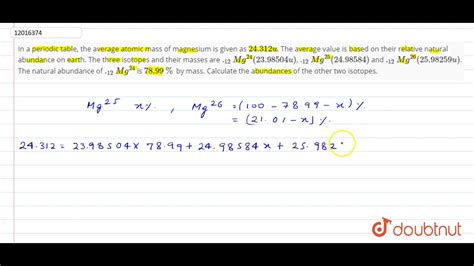 12016374
In a periodic table, the average atomic mass of magnesium is given as 24.312u. The average value is based on their relative natural
abundance on earth. The three isotopes and their masses are ₋₁₂ Mg²⁴(23.98504u), ₋₁₂ Mg²⁵(24.98584) and ₋₁₂ Mg²⁶(25.98259u).
The natural abundance of ₋₁₂ Mg²⁴ is 78.99 % by mass. Calculate the abundances of the other two isotopes.
Mg²⁵ x%. , Mg²⁶ = (100 - 78.99 - x) %.
= (21.01 - x) %.
24.312 = 23.98504 x 78.99 + 24.98584 x + 25.982
doubtnut